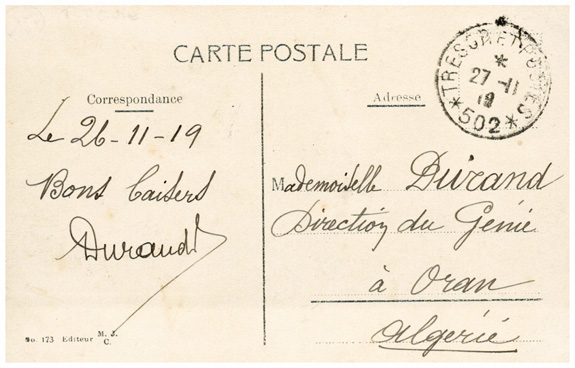 CARTE POSTALE
Correspondance
Le 26-11-19
Bons baisers
Durand
No. 173 Editeur M. J. C.
TRESOR ET POSTES
*
27 -11
19
*502*
Adresse
Mademoiselle Durand
Direction du Génie
à Oran
Algérie